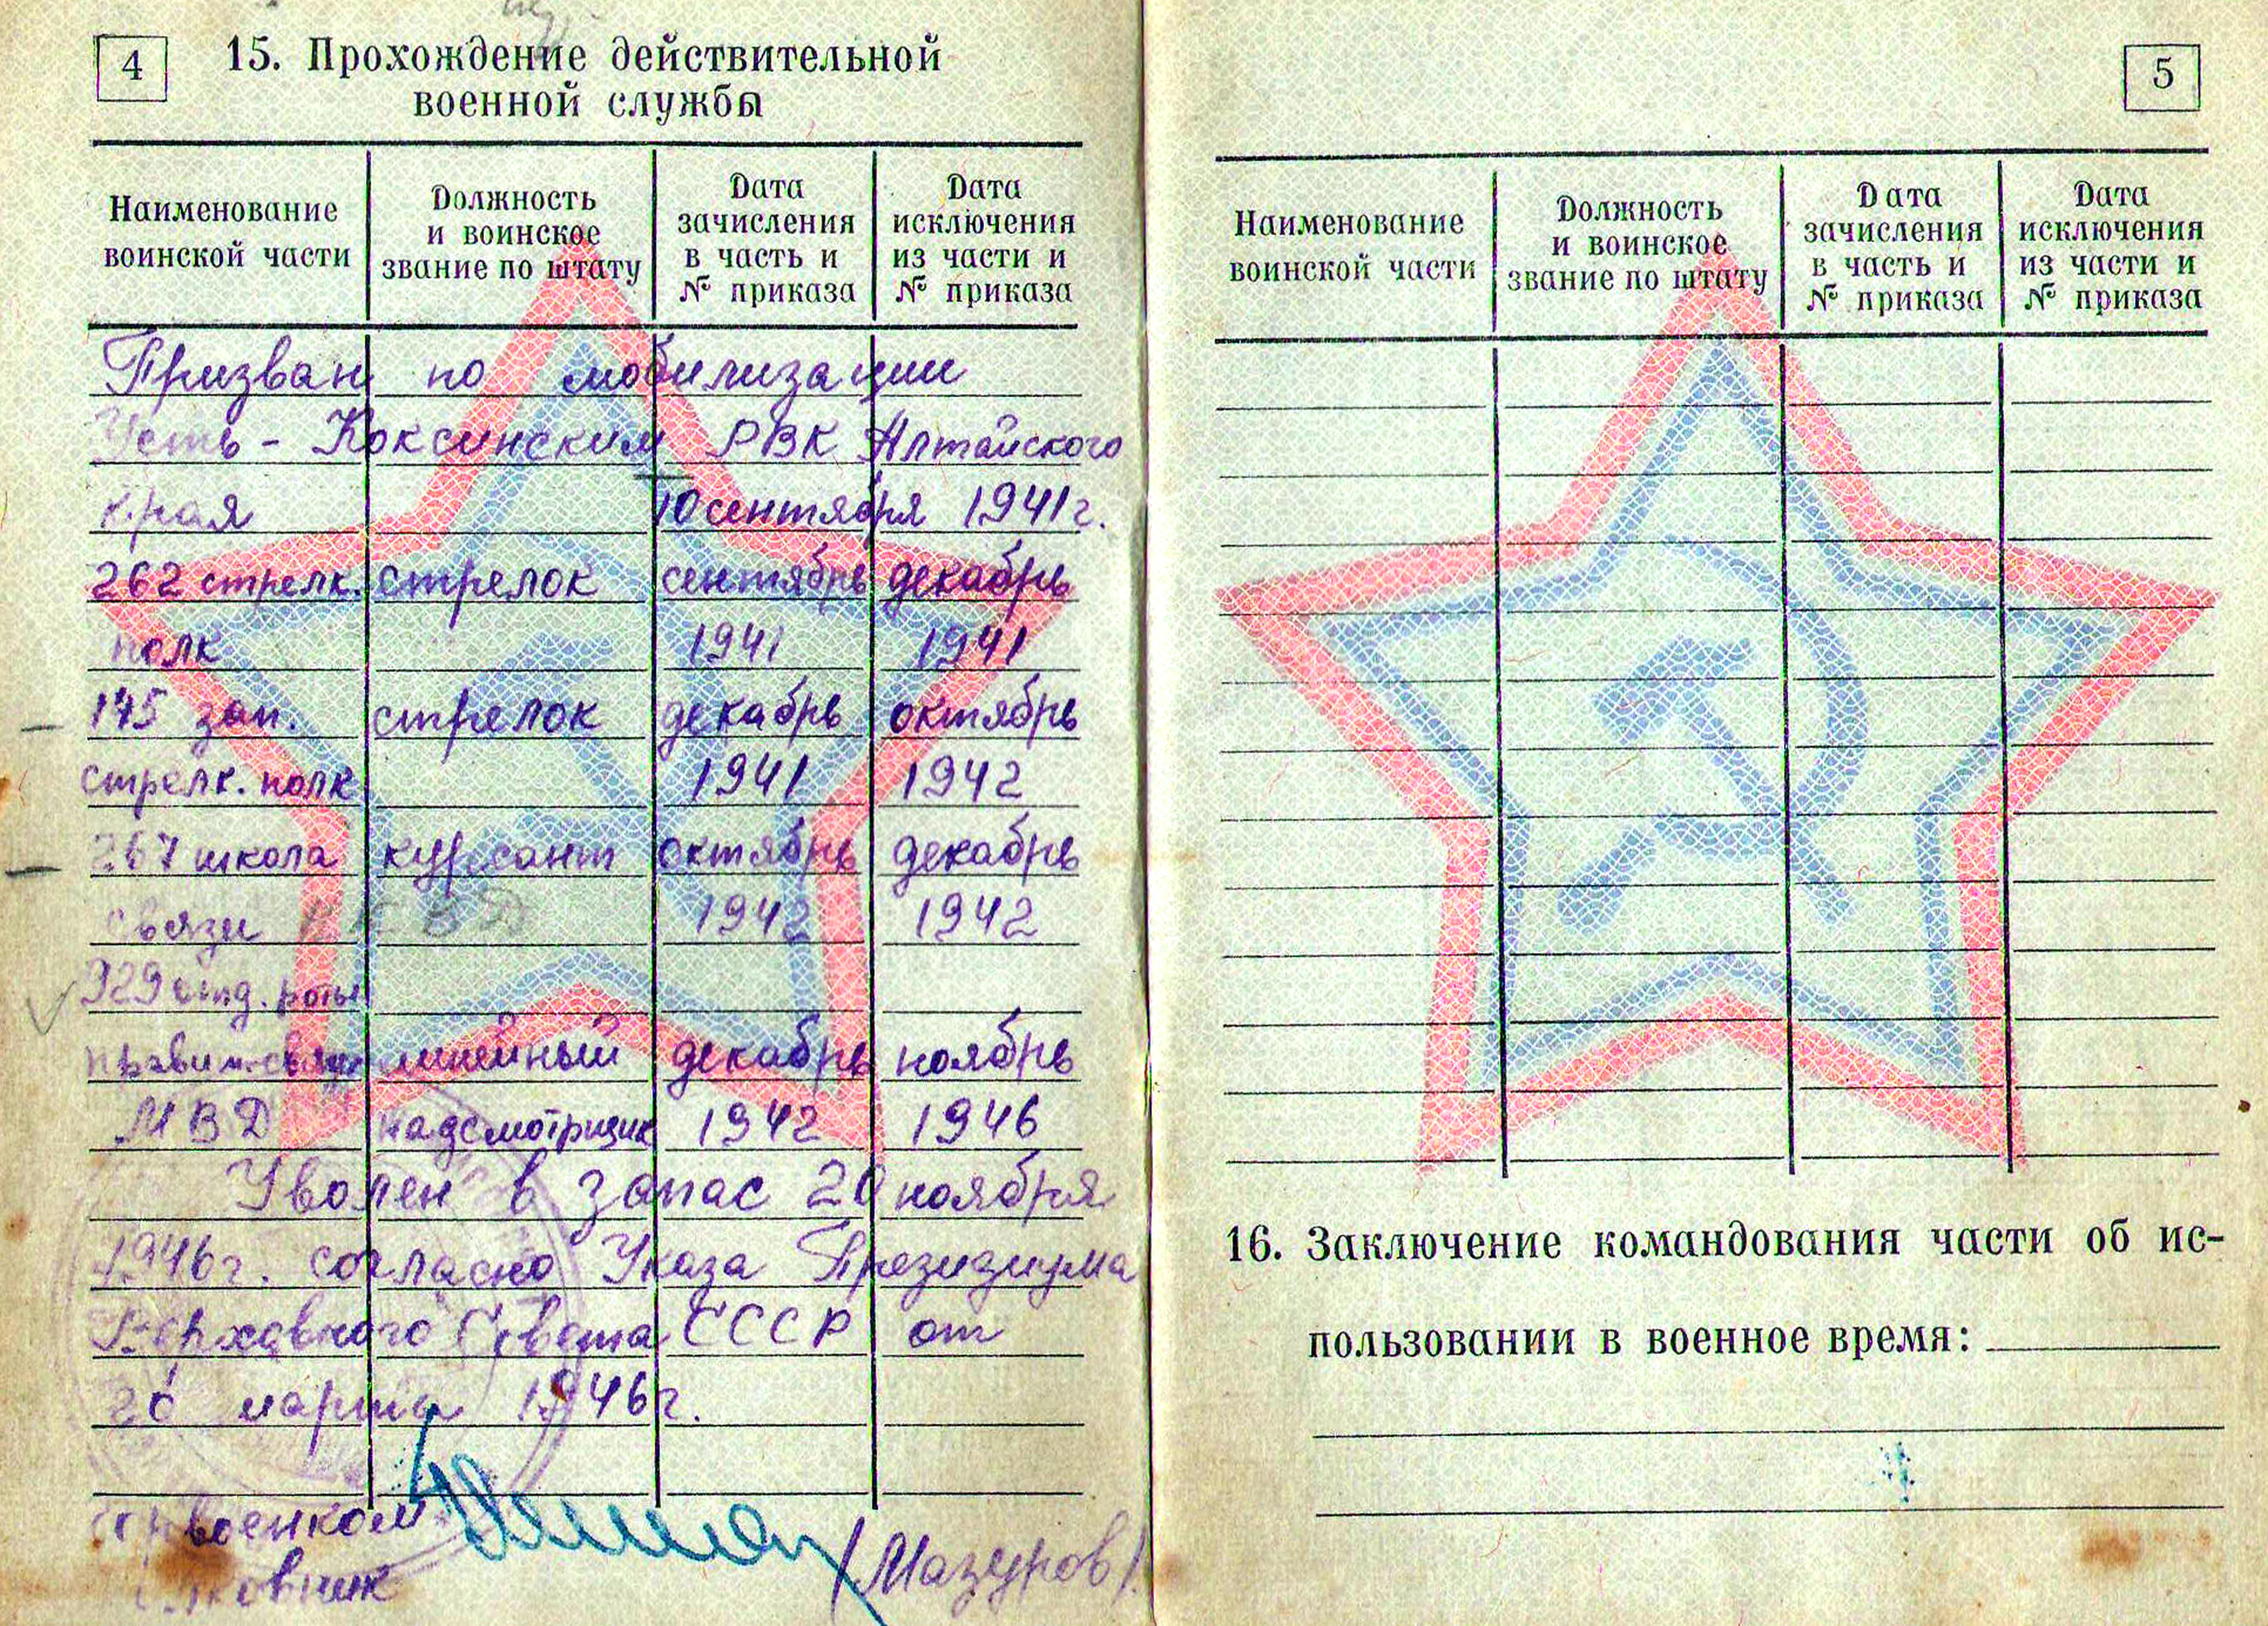 4
15. Прохождение действительной
военной службы
Наименование
воинской части
Должность
и воинское
звание по штату
Дата
зачисления
в часть и
№ приказа
Дата
исключения
из части и
№ приказа
Призван по мобилизации
Усть-Коксинским РВК Алтайского
края 10 сентября 1941г.
262 стрелк. стрелок сентябрь декабрь
полк 1941 1941
145 зап. стрелок декабрь октябрь
стрелк. полк 1941 1942
267 школа курсант октябрь декабрь
связи НКВД 1942 1942
929 отд. роты
правит. связи линейный декабрь ноябрь
МВД надсмотрщик 1942 1946
Уволен в запас 20 ноября
1946г. согласно Указа Президиума
Верховного Совета СССР от
20 марта 1946г.
военком
(Мазуров)
5
Наименование
воинской части
Должность
и воинское
звание по штату
Дата
зачисления
в часть и
№ приказа
Дата
исключения
из части и
№ приказа
16. Заключение командования части об ис-
пользовании в военное время: